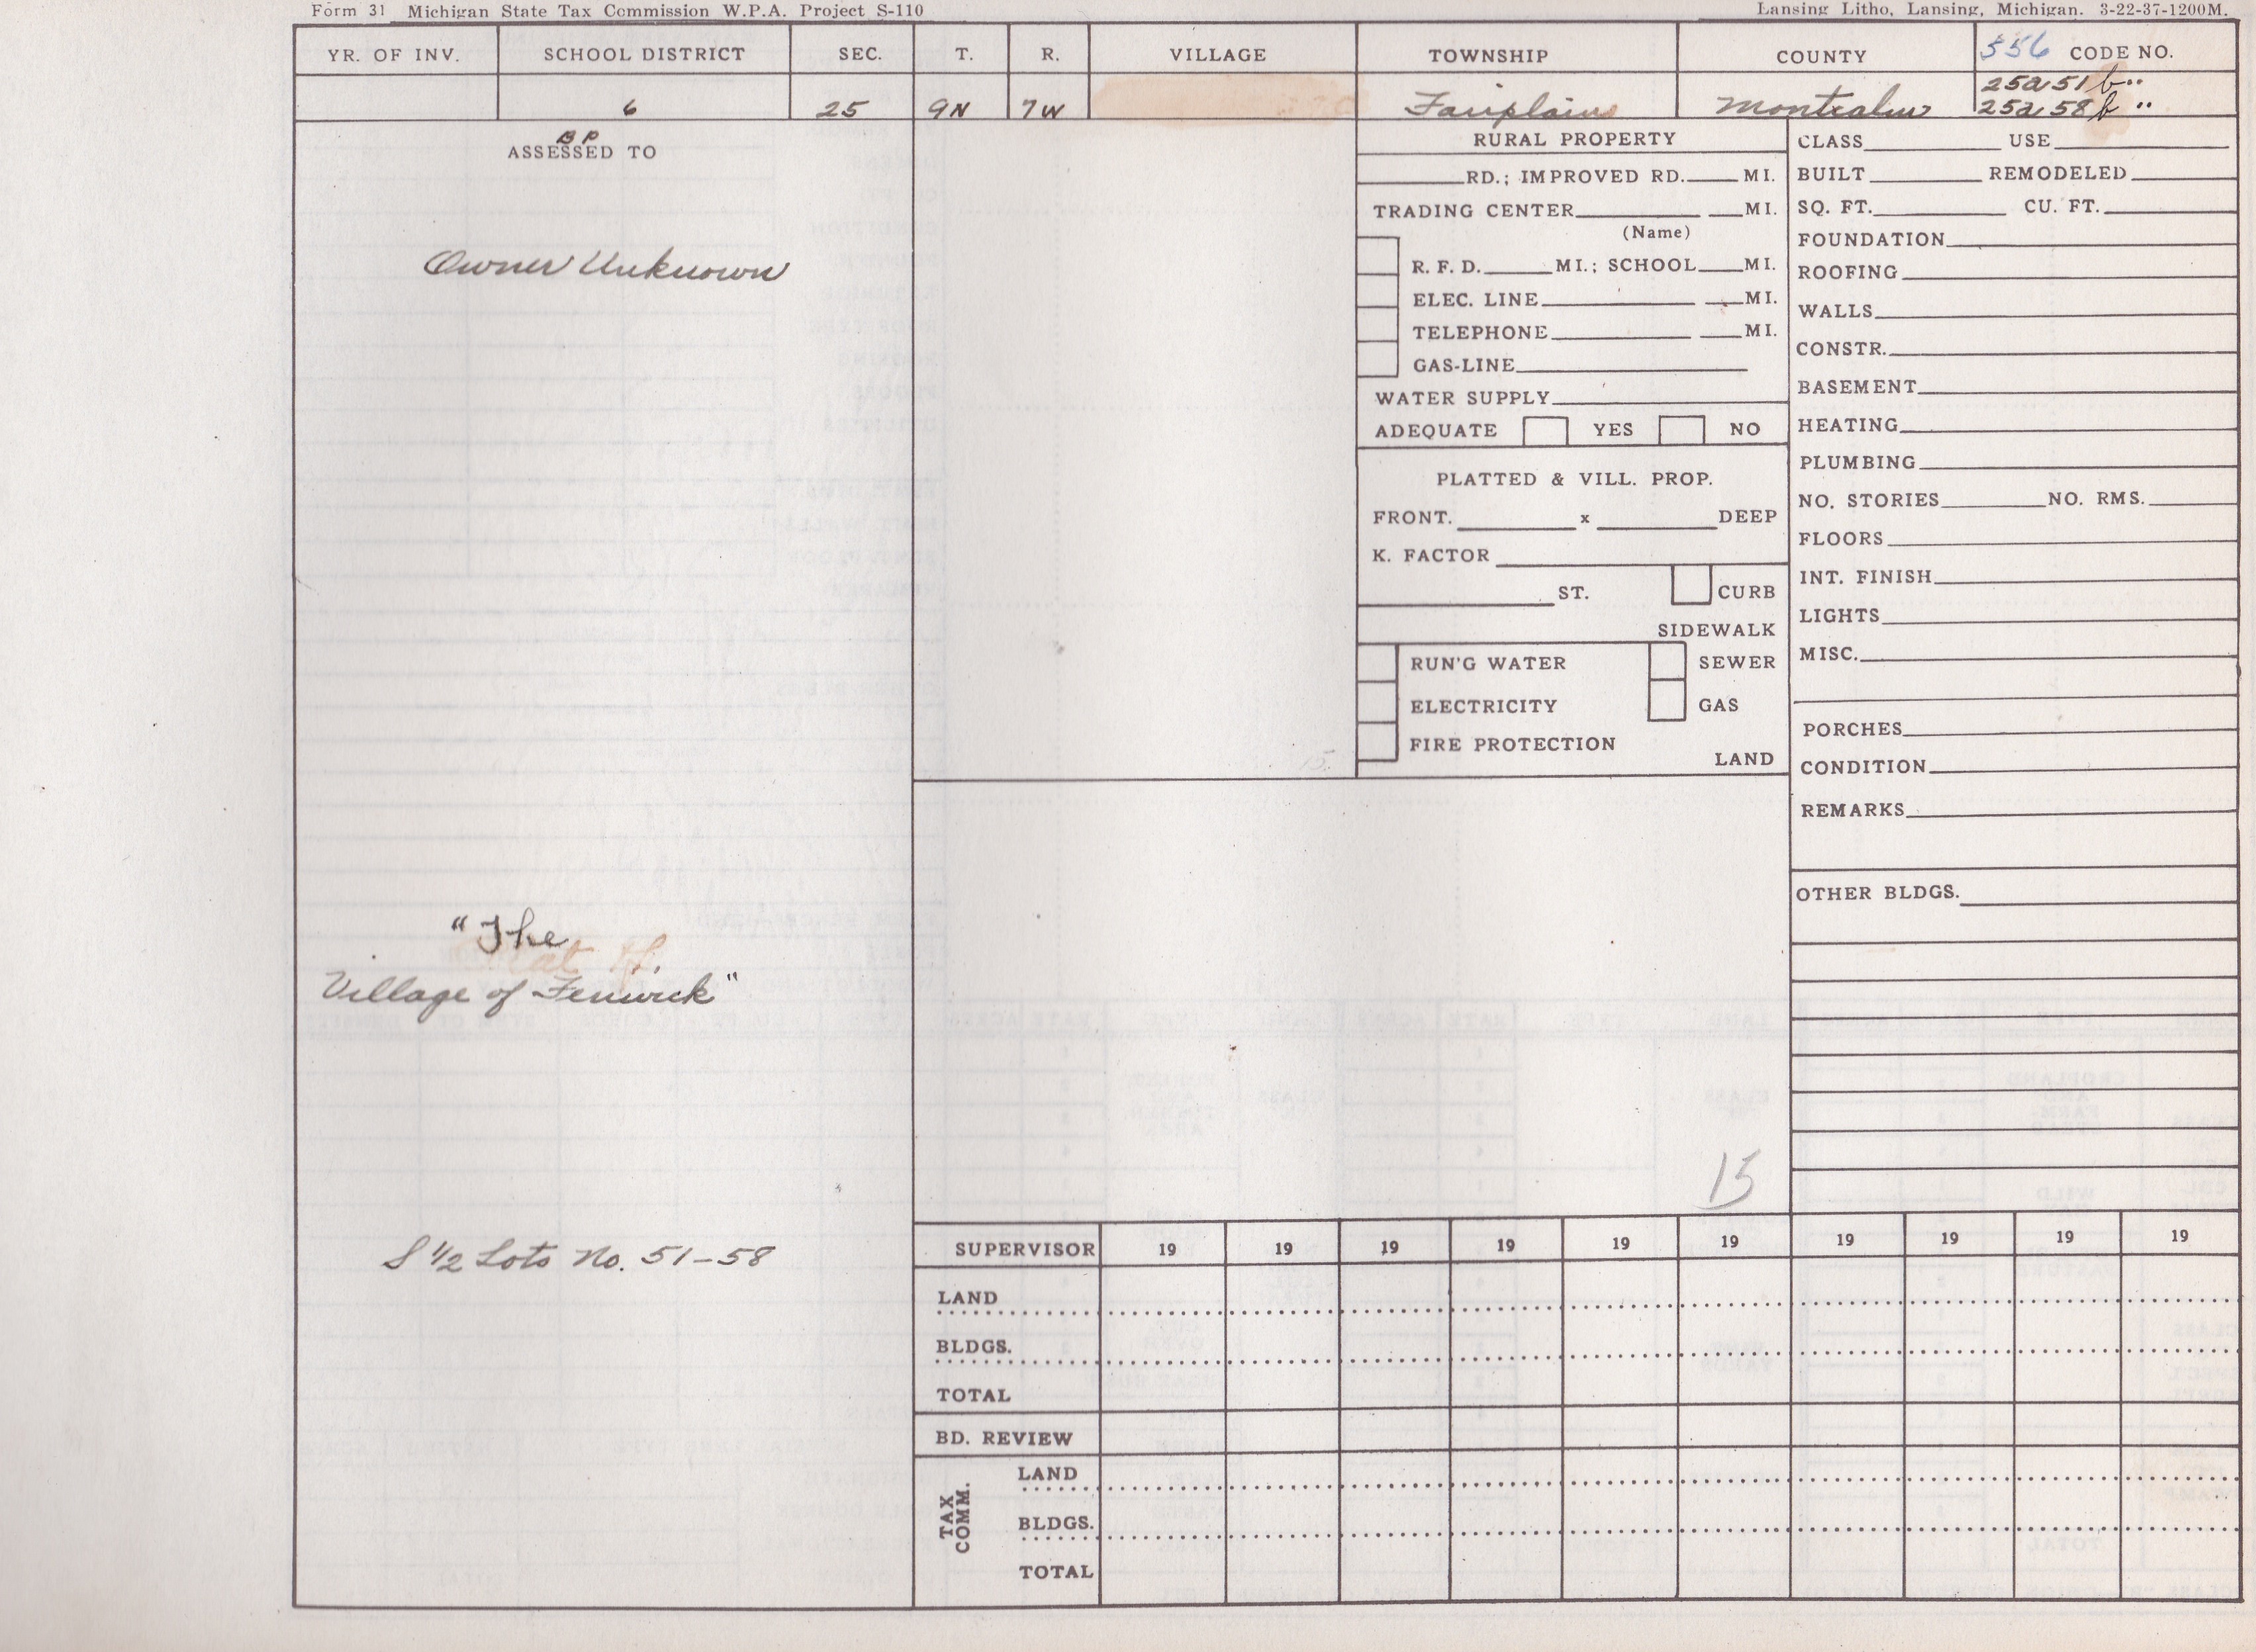 Form 31 Michigan State Tax Commission W.P.A. Project S-110
Lansing Litho, Lansing, Michigan. 3-22-37-1200M.
YR. OF INV. SCHOOL DISTRICT SEC. T. R. VILLAGE TOWNSHIP COUNTY 556 CODE NO.
6 25 9N 7W Fairplains Montcalm 25a 51 b ..
25a 58 b ..
BP
ASSESSED TO
Owner Unknown
"The
Village of Fenwick"
S 1/2 Lots No. 51-58
RURAL PROPERTY
RD.; IMPROVED RD. MI.
TRADING CENTER MI.
(Name)
R. F. D. MI.; SCHOOL MI.
ELEC. LINE MI.
TELEPHONE MI.
GAS-LINE
WATER SUPPLY
ADEQUATE YES NO
PLATTED & VILL. PROP.
FRONT. x DEEP
K. FACTOR
ST. CURB
SIDEWALK
RUN'G WATER SEWER
ELECTRICITY GAS
FIRE PROTECTION
LAND
15
CLASS USE
BUILT REMODELED
SQ. FT. CU. FT.
FOUNDATION
ROOFING
WALLS
CONSTR.
BASEMENT
HEATING
PLUMBING
NO. STORIES NO. RMS.
FLOORS
INT. FINISH
LIGHTS
MISC.
PORCHES
CONDITION
REMARKS
OTHER BLDGS.
SUPERVISOR 19 19 19 19 19 19 19 19 19 19
LAND
BLDGS.
TOTAL
BD. REVIEW
TAX COMM.
LAND
BLDGS.
TOTAL